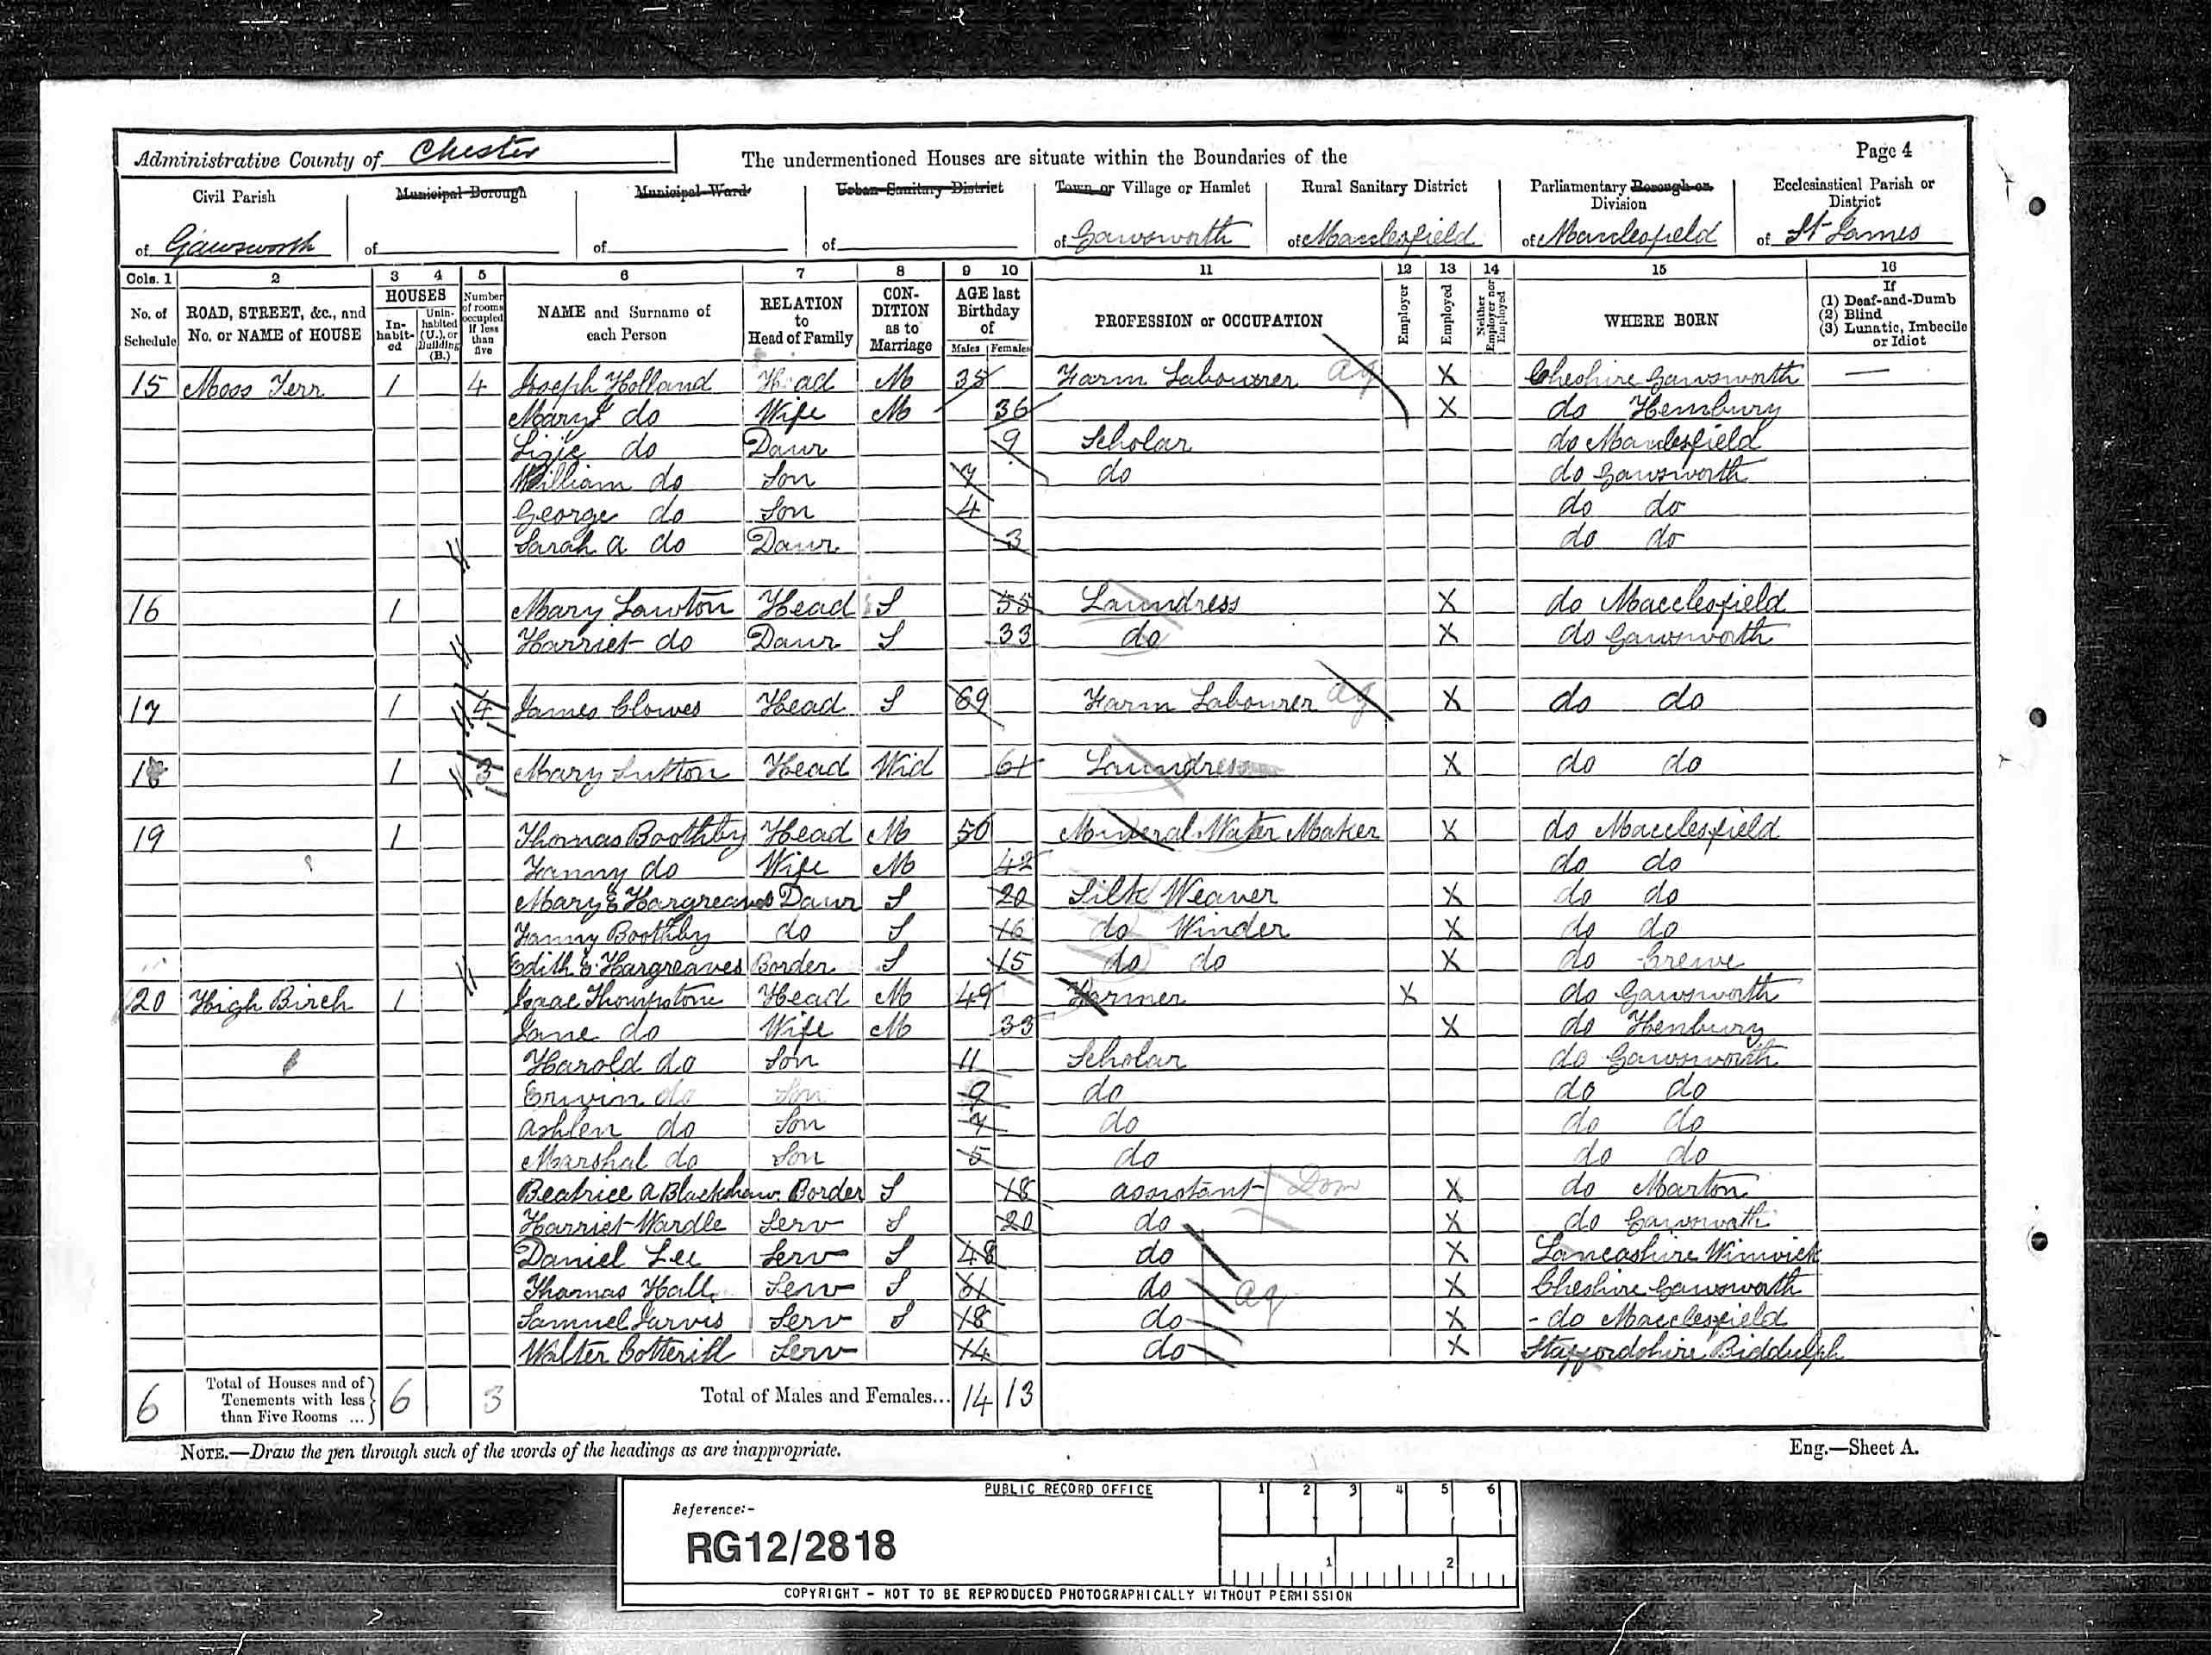 Administrative County of Chester
The undermentioned Houses are situate within the Boundaries of the
Page 4
Civil Parish of Gawsworth
Municipal Borough of
Municipal Ward of
Urban Sanitary District of
Town or Village or Hamlet of Gawsworth
Rural Sanitary District of Macclesfield
Parliamentary Borough or Division of Macclesfield
Ecclesiastical Parish or District of St James
Cols. 1 2 3 4 5 6 7 8 9 10 11 12 13 14 15 16
No. of Schedule
ROAD, STREET, &c., and No. or NAME of HOUSE
HOUSES
In-habit-ed
Unin-habited (U.), or Building (B.)
Number of rooms occupied if less than five
NAME and Surname of each Person
RELATION to Head of Family
CON-DITION as to Marriage
AGE last Birthday of
Males Females
PROFESSION or OCCUPATION
Employer
Employed
Neither Employer nor Employed
WHERE BORN
If
(1) Deaf-and-Dumb
(2) Blind
(3) Lunatic, Imbecile or Idiot
15 Moss Terr 1 4 Joseph Holland Head M 38 Farm Labourer ag X Cheshire Gawsworth —
Mary do Wife M 36 X do Hembury
Lizie do Daur 9 Scholar do Macclesfield
William do Son 7 do do Gawsworth
George do Son 4 do do
Sarah A do Daur 3 do do
16 1 Mary Lawton Head S 55 Laundress X do Macclesfield
Harriet do Daur S 33 do X do Gawsworth
17 1 4 James Clowes Head S 69 Farm Labourer ag X do do
18 1 3 Mary Sutton Head Wid 61 Laundress X do do
19 1 Thomas Boothby Head M 50 Mineral Water Maker X do Macclesfield
Fanny do Wife M 42 do do
Mary E Hargreaves Daur S 20 Silk Weaver X do do
Fanny Boothby do S 16 do Winder X do do
Edith E. Hargreaves Border S 15 do do X do Crewe
20 High Birch 1 Isaac Thompstone Head M 49 Farmer X do Gawsworth
Jane do Wife M 33 X do Henbury
Harold do Son 11 Scholar do Gawsworth
Erwin do Son 9 do do do
Ashlen do Son 7 do do do
Marshal do Son 5 do do do
Beatrice A Blackshaw Border S 18 assistant Dom X do Marton
Harriet Wardle Serv S 20 do X do Gawsworth
Daniel Lee Serv S 48 do X Lancashire Winwick
Thomas Hall Serv S 61 do ag X Cheshire Gawsworth
Samuel Jarvis Serv S 18 do X - do Macclesfield
Walter Cotterill Serv 14 do X Staffordshire Biddulph
6 Total of Houses and of Tenements with less than Five Rooms ... 6 3 Total of Males and Females... 14 13
NOTE.—Draw the pen through such of the words of the headings as are inappropriate.
Eng.—Sheet A.
PUBLIC RECORD OFFICE
1 2 3 4 5 6
Reference:-
RG12/2818
1 2
COPYRIGHT - NOT TO BE REPRODUCED PHOTOGRAPHICALLY WITHOUT PERMISSION